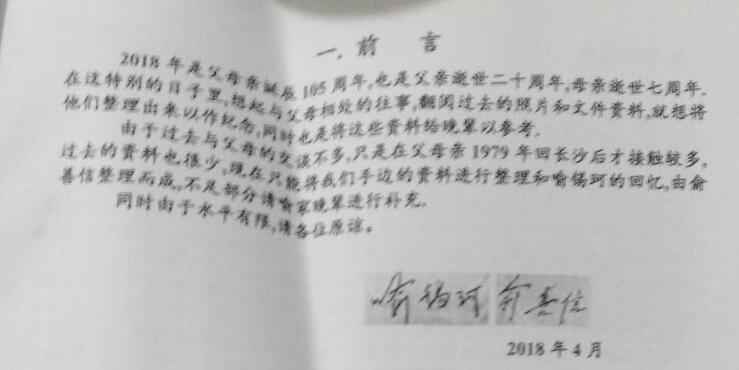 一.前 言
2018年是父母亲诞辰105周年,也是父亲逝世二十周年,母亲逝世七周年.
在这特别的日子里,想起与父母相处的往事,翻阅过去的照片和文件资料,就想将
他们整理出来以作纪念,同时也是将这些资料给晚辈以参考.
由于过去与父母的交谈不多,只是在父母亲1979年回长沙后才接触较多,
过去的资料也很少,现在只能将我们手边的资料进行整理和喻锡珂的回忆,由俞
善信整理而成,不足部分请喻家晚辈进行补充.
同时由于水平有限,请各位原谅。
喻锡珂 俞善信
2018年4月